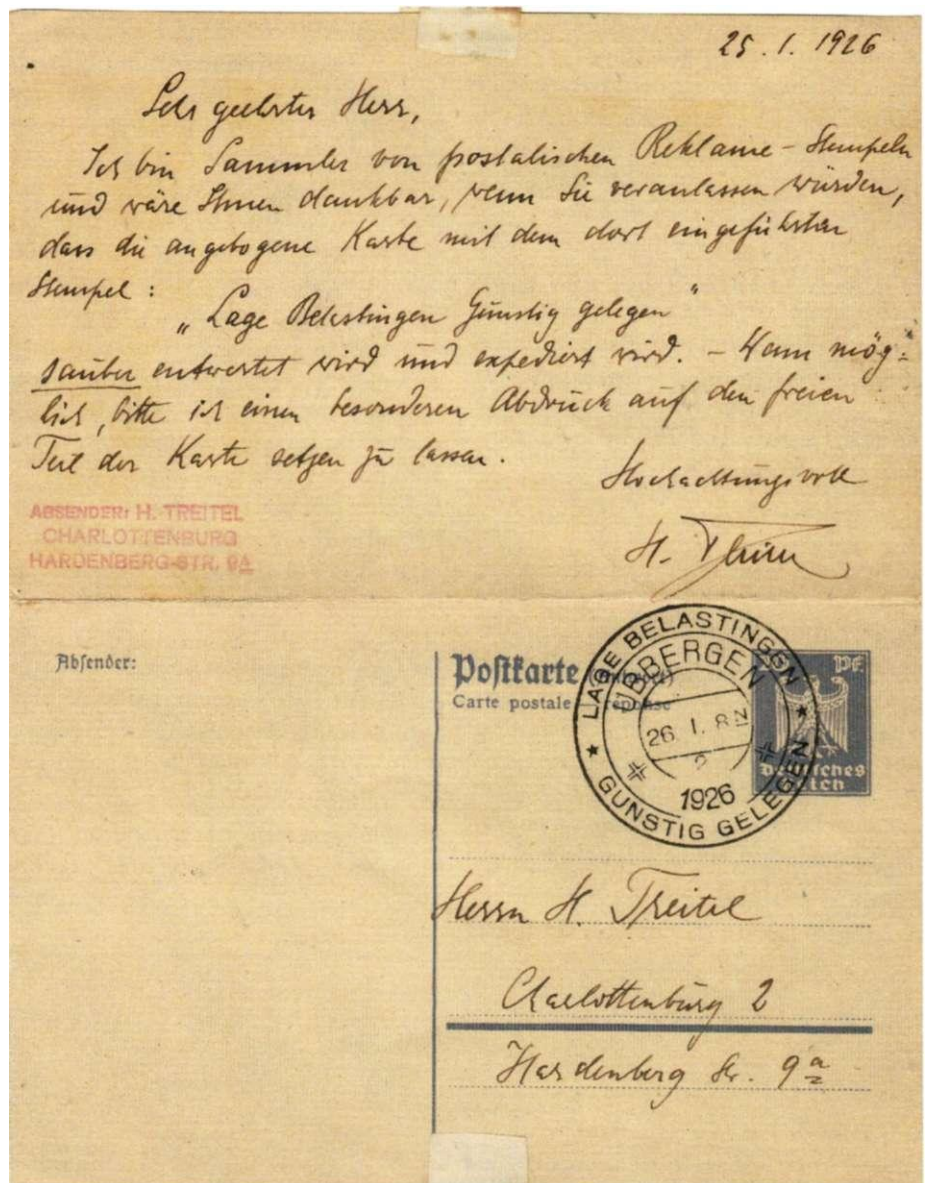 25.1.1926
Sehr geehrter Herr,
Ich bin Sammler von postalischen Reklame-Stempeln
und wäre Ihnen dankbar, wenn Sie veranlassen würden,
dass die angebogene Karte mit dem dort eingeführten
Stempel:
„Lage Belastingen Günstig gelegen"
sauber entwertet wird und expediert wird. – Wenn mög=
lich, bitte ich einen besonderen Abdruck auf den freien
Teil der Karte setzen zu lassen.
Hochachtungsvoll
H.
ABSENDER: H. TREITEL
CHARLOTTENBURG
HARDENBERG-STR. 9A
Absender:
Postkarte
Carte postale réponse
LAGE BELASTINGEN
UBBERGEN
26.I.8N
2
1926
GUNSTIG GELEGEN
Pf
Deutsches
Reich
Herrn H. Treitel
Charlottenburg 2
Hardenberg Str. 9a